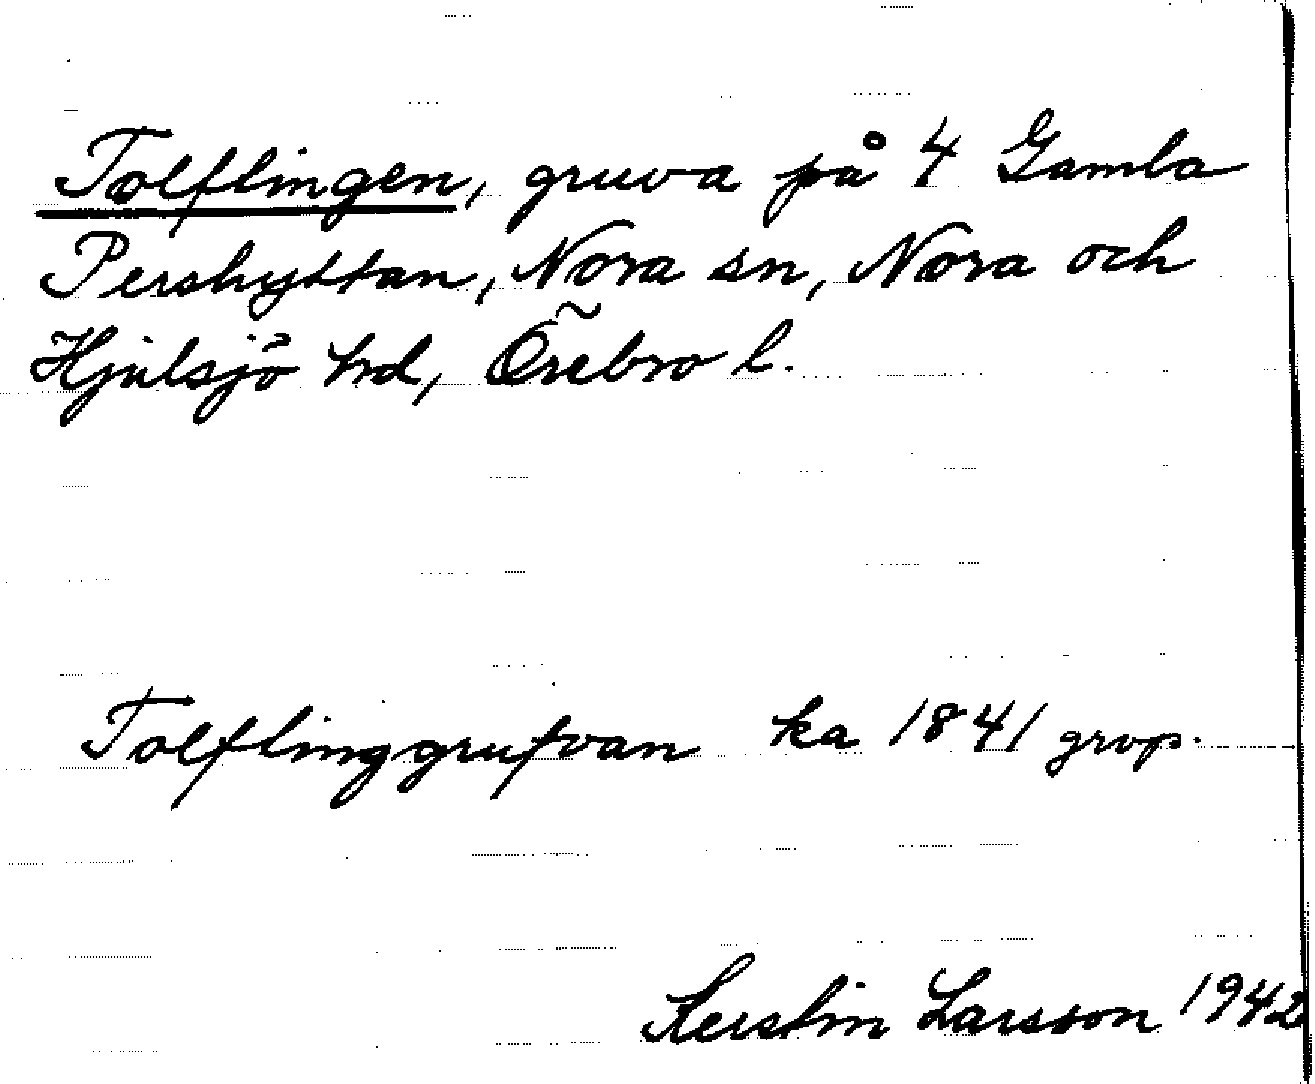 Tolflingen, gruva på 4 Gamla
Pershyttan, Nora sn, Nora och
Hjulsjö hd, Örebro l.
Tolflinggrufvan ka 1841 grvp.
Kerstin Larsson 1942